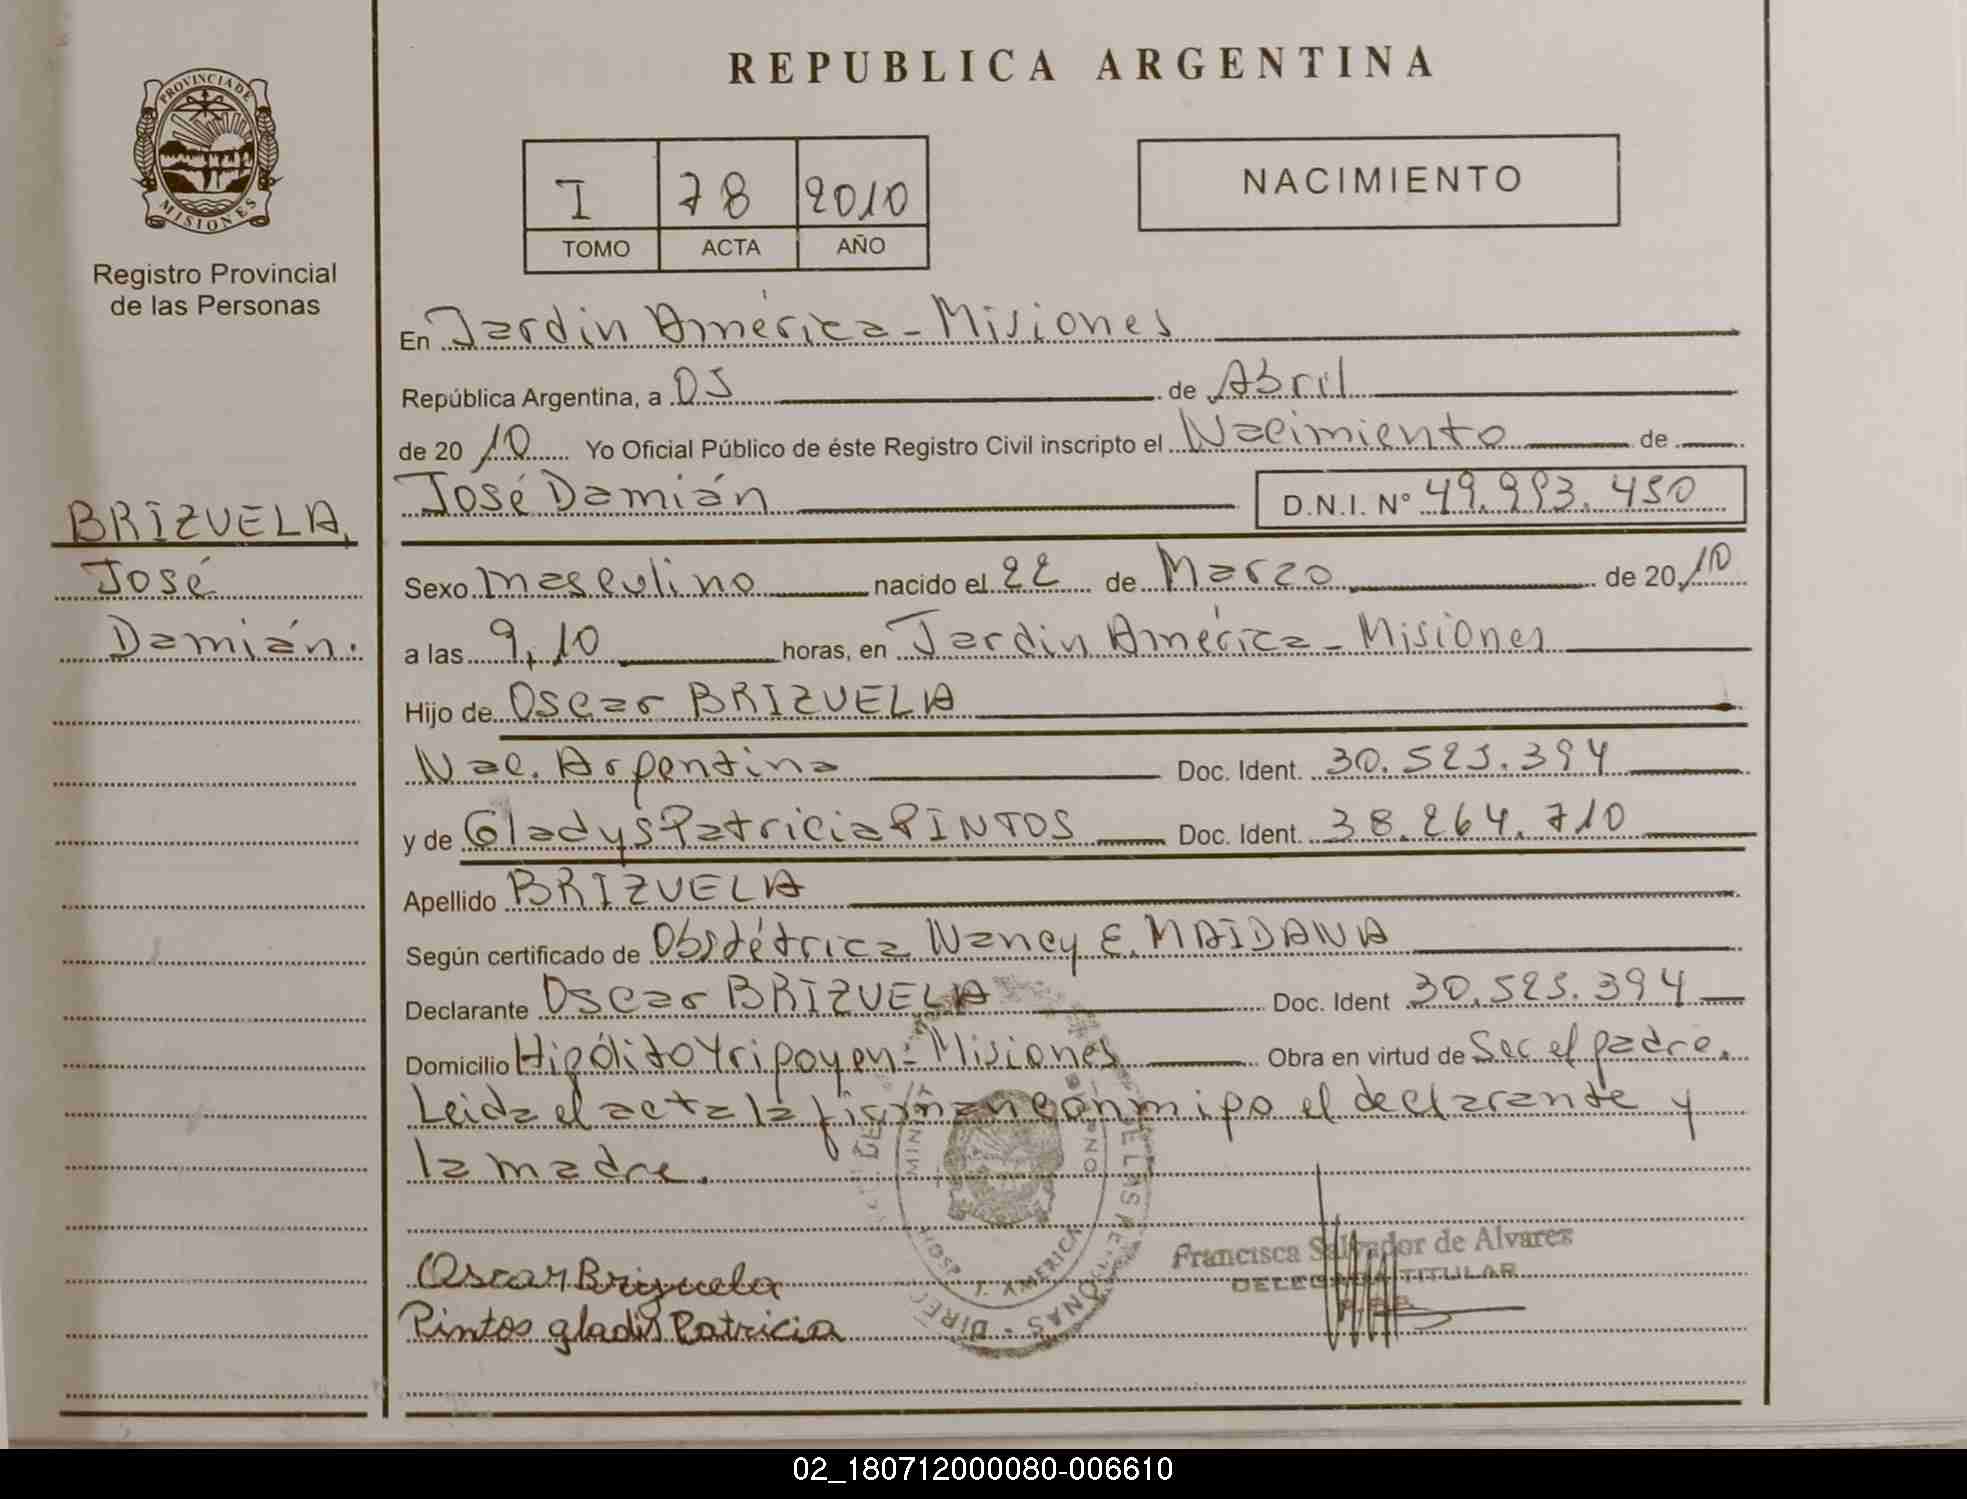 REPUBLICA ARGENTINA
PROVINCIA DE
MISIONES
Registro Provincial
de las Personas
I 78 2010
TOMO ACTA AÑO
NACIMIENTO
En Jardin América - Misiones
República Argentina, a 05 de Abril
de 2010 Yo Oficial Público de éste Registro Civil inscripto el Nacimiento de
José Damián D.N.I. Nº 49.993.450
BRIZUELA,
José
Damián.
Sexo masculino nacido el 22 de Marzo de 2010
a las 9,10 horas, en Jardin América - Misiones
Hijo de Oscar BRIZUELA
Nac. Argentina Doc. Ident. 30.523.394
y de Gladys Patricia PINTOS Doc. Ident. 38.264.710
Apellido BRIZUELA
Según certificado de Obstétrica Nancy E. MAIDANA
Declarante Oscar BRIZUELA Doc. Ident 30.523.394
Domicilio Hipólito Yrigoyen - Misiones Obra en virtud de Ser el padre.
Leida el acta la firman conmigo el declarante y
la madre.
Francisca Salvador de Alvarez
DELEGADA TITULAR
Oscar Brizuela
Pintos gladis Patricia
02_180712000080-006610